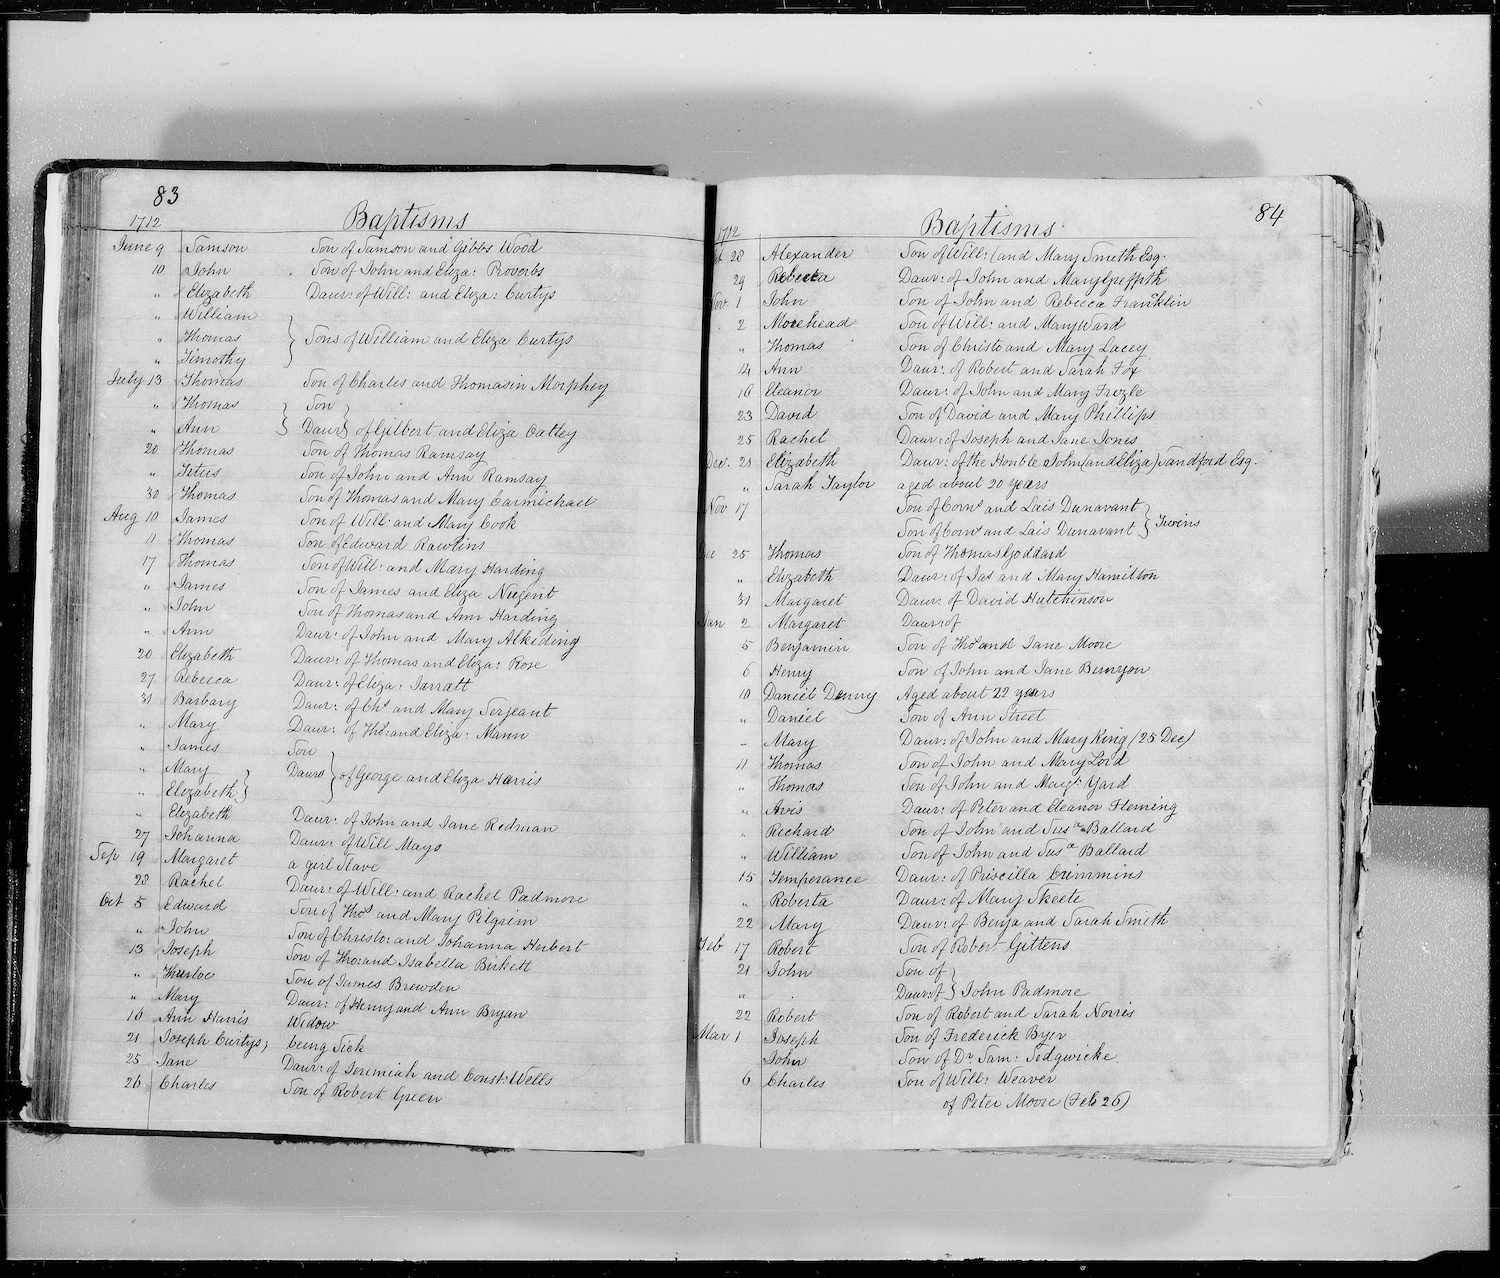 83
1712 Baptisms
June 9 Samson Son of Samson and Gibbs Wood
10 John Son of John and Eliza: Proverbs
" Elizabeth Daur: of Will: and Eliza: Curtys
" William
" Thomas } Sons of William and Eliza Curtys
" Timothy
July 13 Thomas Son of Charles and Thomasin Morphey
" Thomas } Son }
" Ann } Daur } of Gilbert and Eliza Catley
20 Thomas Son of Thomas Ramsay
" Titus Son of John and Ann Ramsay
30 Thomas Son of Thomas and Mary Carmichael
Aug 10 James Son of Will: and Mary Cook
11 Thomas Son of Edward Rawlins
17 Thomas Son of Will: and Mary Harding
" James Son of James and Eliza Nugent
" John Son of Thomas and Ann Harding
" Ann Daur: of John and Mary Alkeding
20 Elizabeth Daur: of Thomas and Eliza: Rose
27 Rebecca Daur: of Eliza: Jarratt
31 Barbary Daur: of Chs and Mary Serjeant
" Mary Daur: of Tho: and Eliza: Mann
" James Son
" Mary } Daurs } of George and Eliza Harris
" Elizabeth }
" Elizabeth Daur: of John and Jane Redman
27 Johanna Daur: of Will Mays
Sep 19 Margaret a girl Slave
28 Rachel Daur: of Will: and Rachel Padmore
Oct 5 Edward Son of Thos and Mary Pilgrim
" John Son of Christo: and Johanna Herbert
13 Joseph Son of Tho: and Isabella Birkett
" Thurloe Son of James Brewden
" Mary Daur: of Henry and Ann Bryan
16 Ann Harris Widow
21 Joseph Curtys, being Sick
25 Jane Daur: of Jeremiah and Const: Wells
26 Charles Son of Robert Green
84
1712 Baptisms
28 Alexander Son of Will: (and Mary Smeth Esq.
29 Rebecca Daur: of John and Mary Greffith
Nov 1 John Son of John and Rebecca Franklin
2 Morehead Son of Will: and Mary Ward
" Thomas Son of Christo and Mary Lacey
14 Ann Daur: of Robert and Sarah Fox
16 Eleanor Daur: of John and Mary Frezle
23 David Son of David and Mary Phillips
25 Rachel Daur: of Joseph and Jane Jones
Dec. 21 Elizabeth Daur: of the Honble John (and Eliza) Sandford Esq.
" Sarah Taylor aged about 20 years
Nov 17 Son of Corns and Lais Dunavant
Son of Corns and Lais Dunavant } Twins
25 Thomas Son of Thomas Goddard
" Elizabeth Daur: of Jas and Mary Hamilton
31 Margaret Daur: of David Hutchinson
Jan 2 Margaret Daur: of
5 Benjamin Son of Thos and Jane Moore
6 Henry Son of John and Jane Bunyon
10 Daniel Denny Aged about 22 years
" Daniel Son of Ann Street
" Mary Daur: of John and Mary King (25 Dec)
11 Thomas Son of John and Mary Lord
" Thomas Son of John and Margt Yard
" Avis Daur: of Peter and Eleanor Fleming
" Richard Son of John and Susa Ballard
" William Son of John and Susa Ballard
15 Temperance Daur: of Priscilla Cummins
" Roberta Daur: of Mary Skeete
22 Mary Daur: of Benja and Sarah Smeth
Feb 17 Robert Son of Robert Gittens
21 John Son of }
" Daur: of } John Padmore
22 Robert Son of Robert and Sarah Norris
Mar 1 Joseph Son of Frederick Byer
John Son of Dr Sam: Sedgwicke
6 Charles Son of Will: Weaver
of Peter Moore (Feb 26)